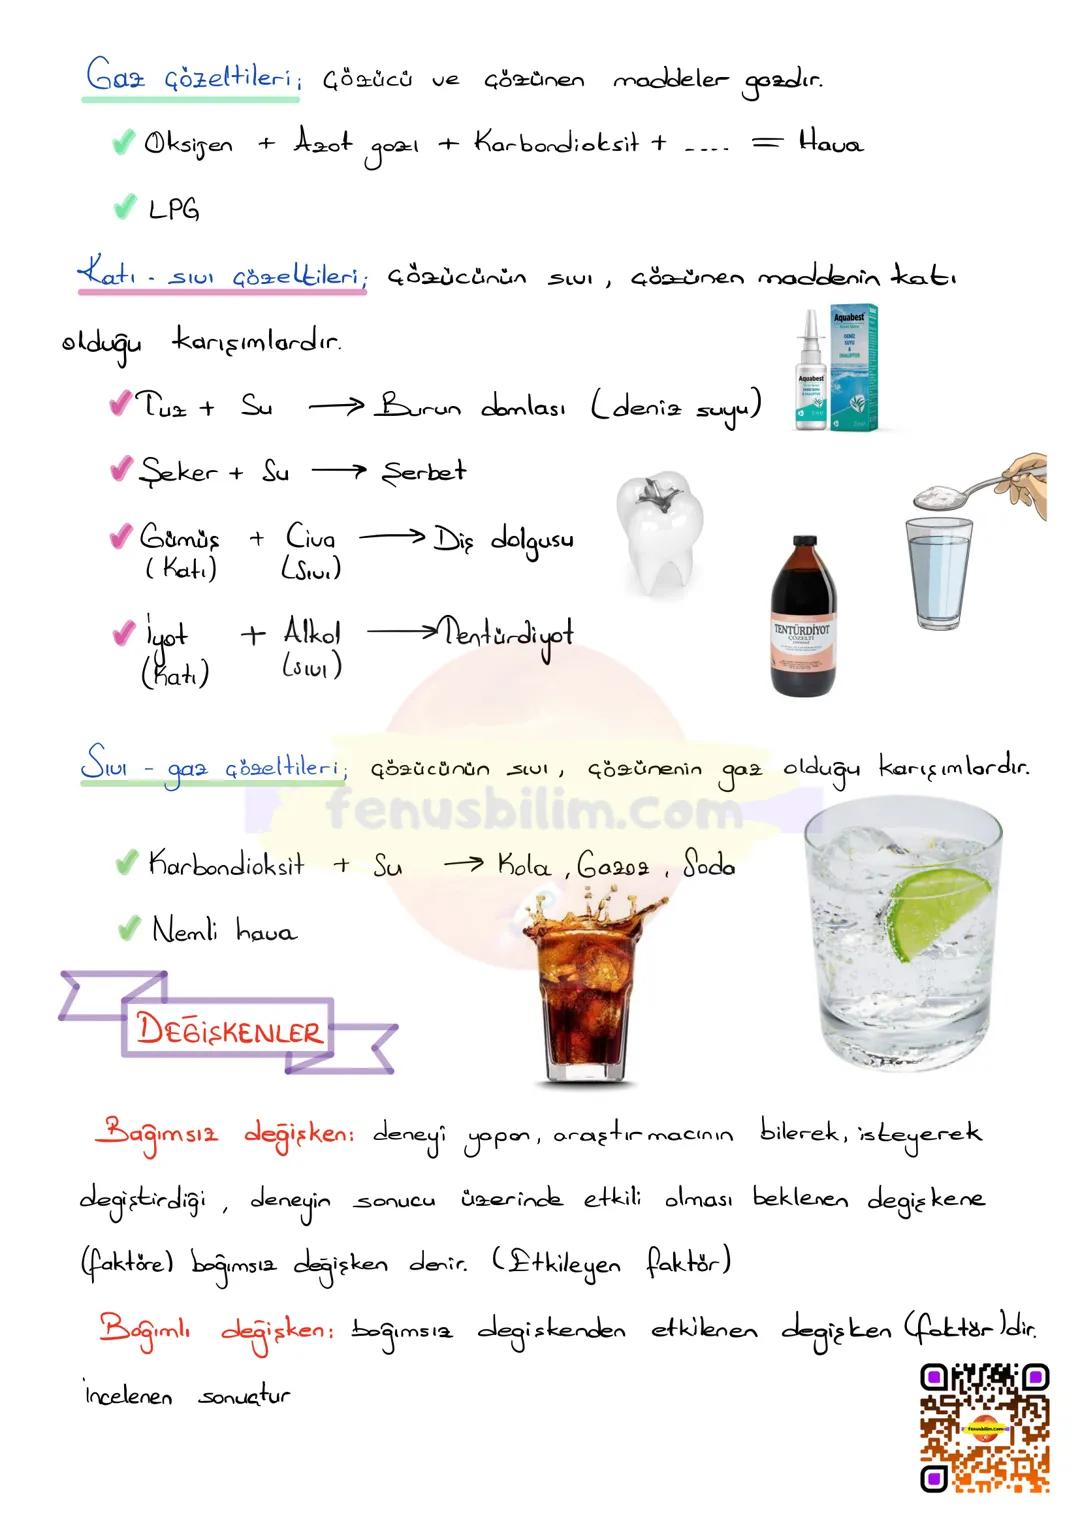 Gaz çözeltileri; Çözücü ve çözünen maddeler gazdır.
Oksijen + Azot gazı + Karbondioksit + .... = Hava
LPG
Katı - sıvı çözeltileri; Çözücünün sıvı, çözünen maddenin katı
olduğu karışımlardır.
Aquabest
DENİZ
SUYU
&
OKALİPTUS
Aquabest
Tuz + Su → Burun damlası (deniz suyu)
Şeker + Su → Şerbet
Gümüş + Civa → Diş dolgusu
(Katı) (Sıvı)
TENTÜRDİYOT
ÇÖZELTİ
İyot + Alkol → Tentürdiyot
(Katı) (sıvı)
Sıvı - gaz çözeltileri; Çözücünün sıvı, çözünenin gaz olduğu karışımlardır.
fenusbilim.com
Karbondioksit + Su → Kola, Gazoz, Soda
Nemli hava
DEĞİŞKENLER
Bağımsız değişken: deneyi yapan, araştırmacının bilerek, isteyerek
degiştirdiği, deneyin sonucu üzerinde etkili olması beklenen degişkene
(faktöre) bağımsız değişken denir. (Etkileyen faktör)
Bağımlı değişken: bağımsız degiskenden etkilenen degişken (faktör)dir.
incelenen sonuçtur
fenusbilim.com